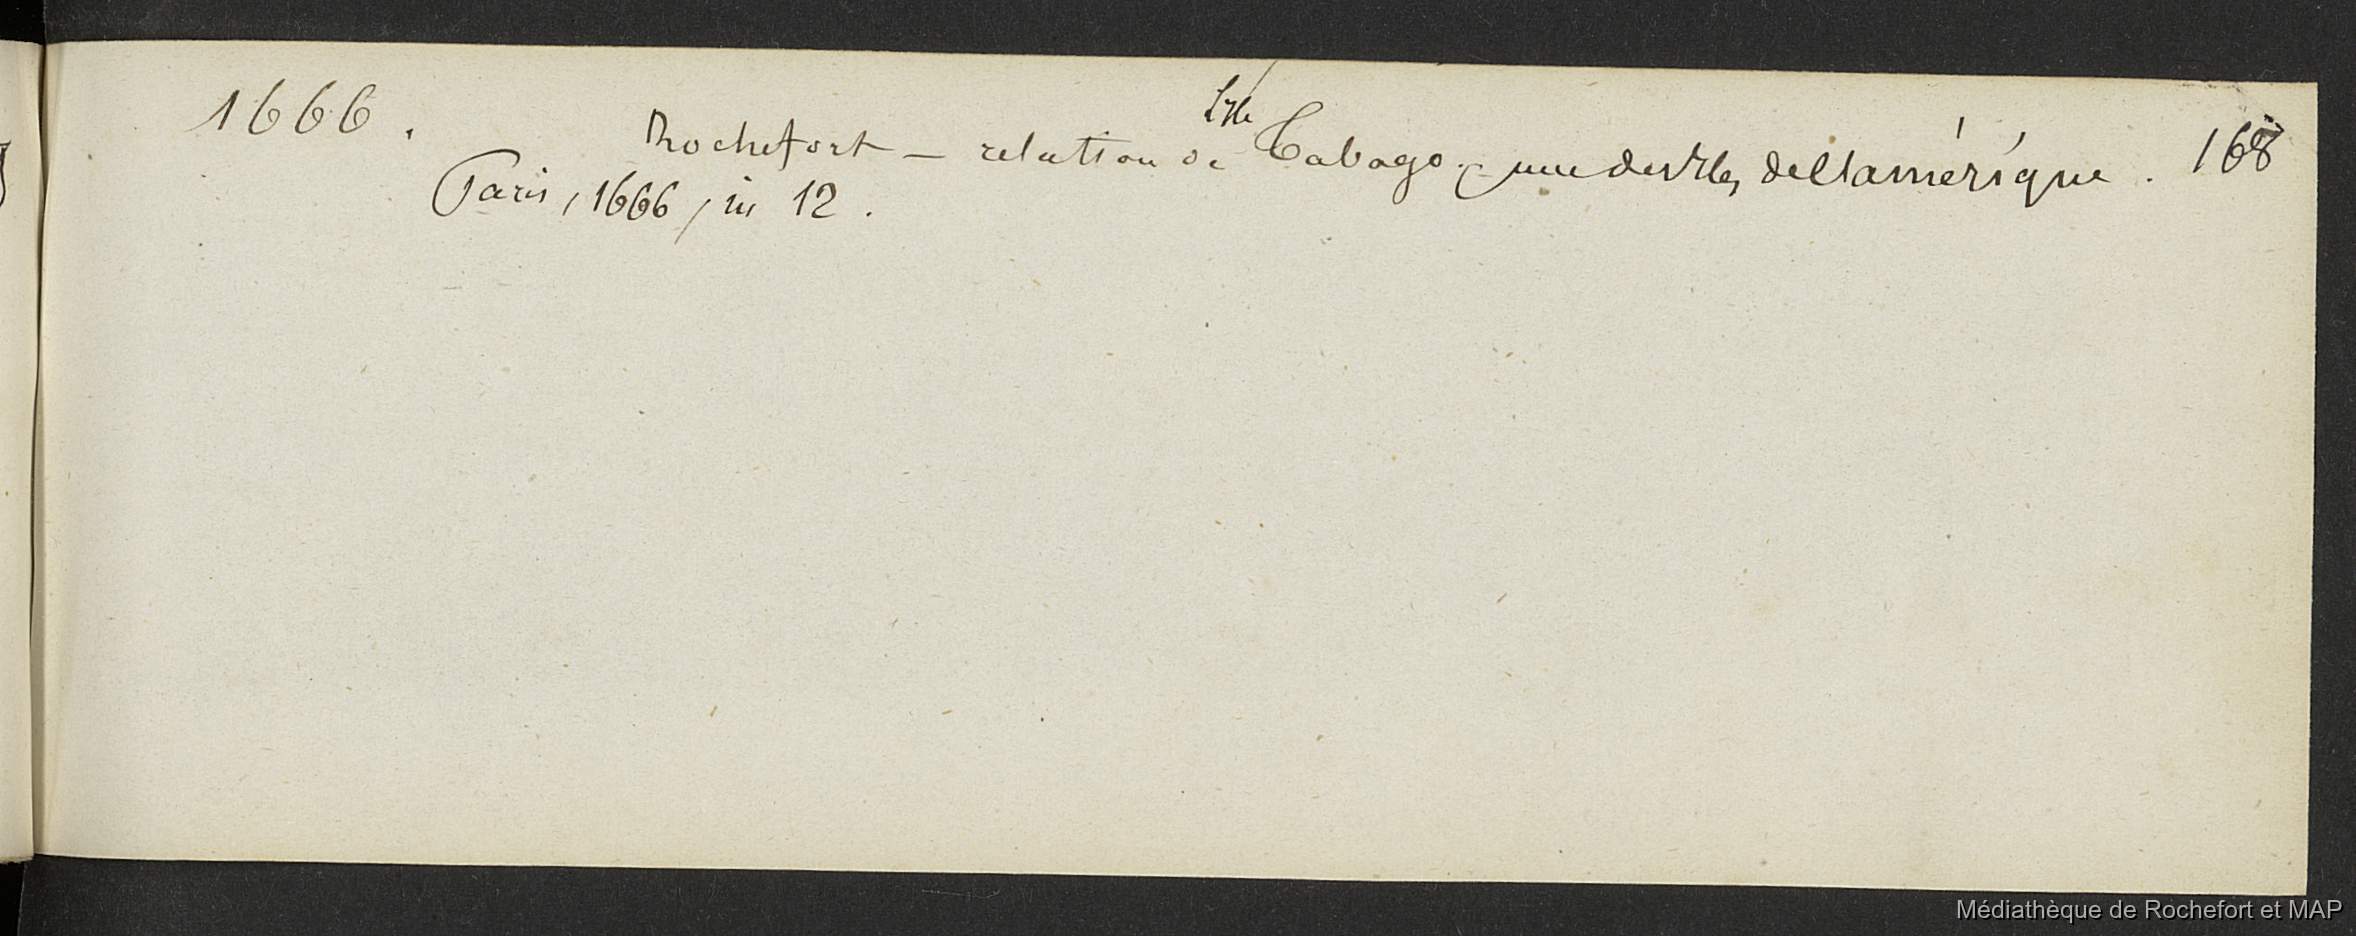 1666.
Rochefort — relation de l'isle Tabago, une des isles de l'amérique. 168
Paris, 1666, in 12.
Médiathèque de Rochefort et MAP